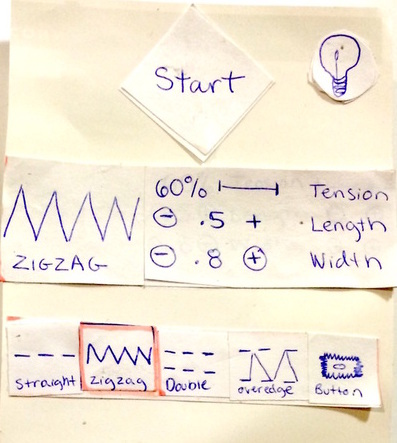 Start
60% Tension
- .5 + Length
- .8 + Width
ZIGZAG
straight zigzag Double overedge Button